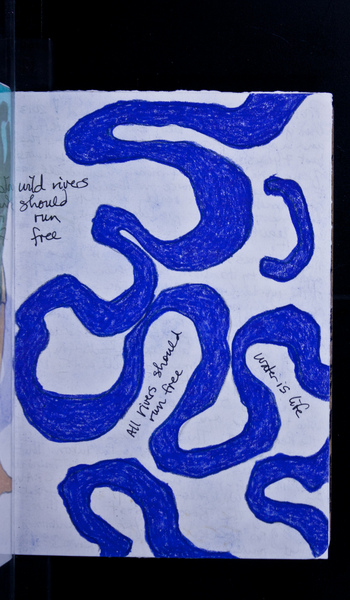 wild rivers
should
run
free
All rivers should
run free
water is life